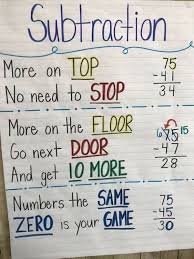 Subtraction
More on TOP
No need to STOP
75
-41
34
More on the FLOOR
Go next DOOR
And get 10 MORE
6 15
75
-47
28
Numbers the SAME
ZERO is your GAME
75
-45
30